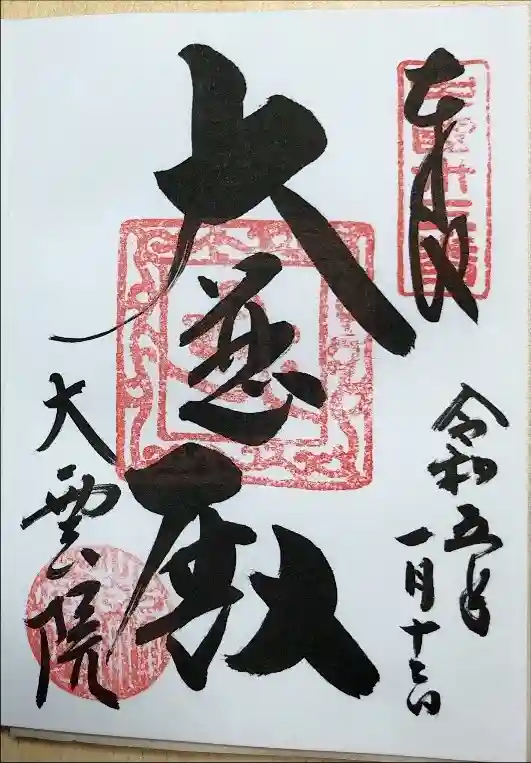 奉拝
令和五年
一月十三日
大慈殿
大雲院